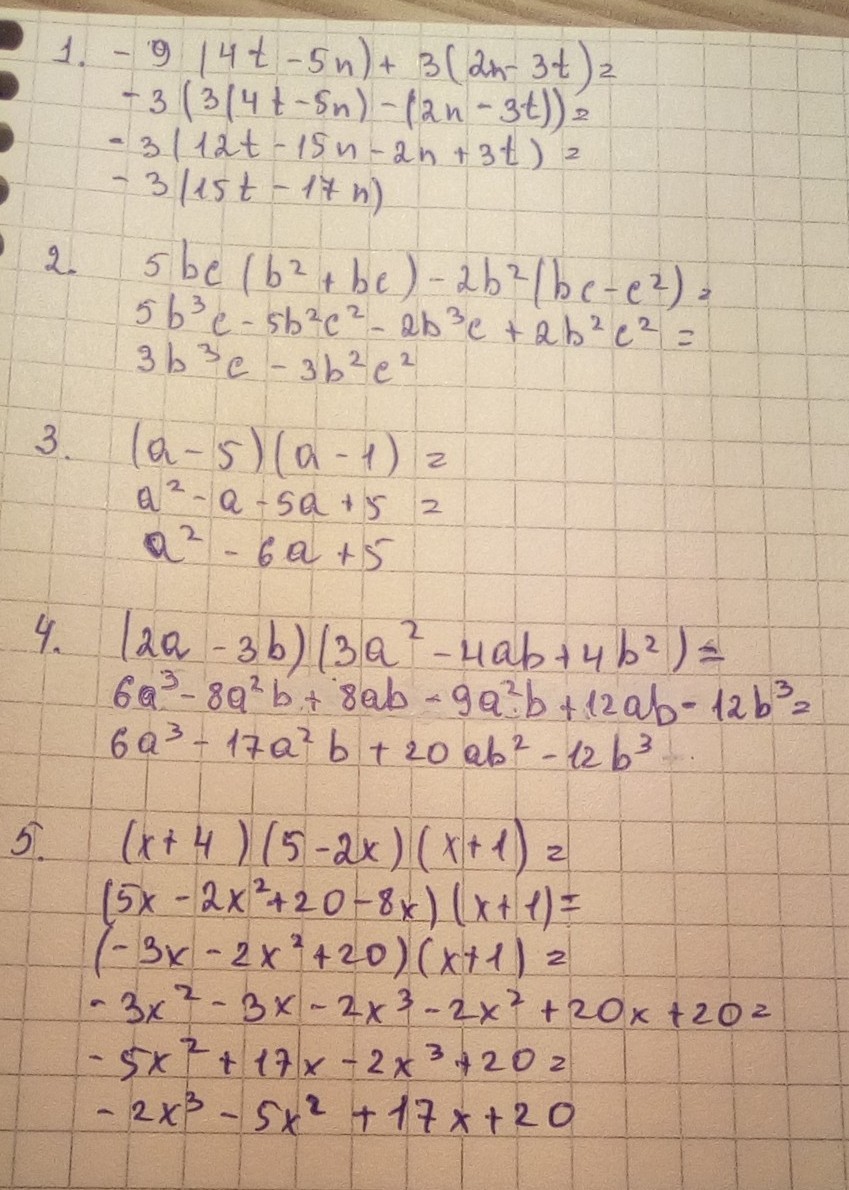 1. - 9 (4t - 5n) + 3(2n - 3t) =
- 3 (3(4t - 5n) - (2n - 3t)) =
- 3 (12t - 15n - 2n + 3t) =
- 3 (15t - 17n)
2. 5bc (b² + bc) - 2b² (bc - c²) =
5b³c - 5b²c² - 2b³c + 2b²c² =
3b³c - 3b²c²
3. (a - 5)(a - 1) =
a² - a - 5a + 5 =
a² - 6a + 5
4. (2a - 3b)(3a² - 4ab + 4b²) =
6a³ - 8a²b + 8ab - 9a²b + 12ab - 12b³ =
6a³ - 17a²b + 20ab² - 12b³
5. (x + 4)(5 - 2x)(x + 1) =
(5x - 2x² + 20 - 8x)(x + 1) =
(- 3x - 2x² + 20)(x + 1) =
- 3x² - 3x - 2x³ - 2x² + 20x + 20 =
- 5x² + 17x - 2x³ + 20 =
- 2x³ - 5x² + 17x + 20